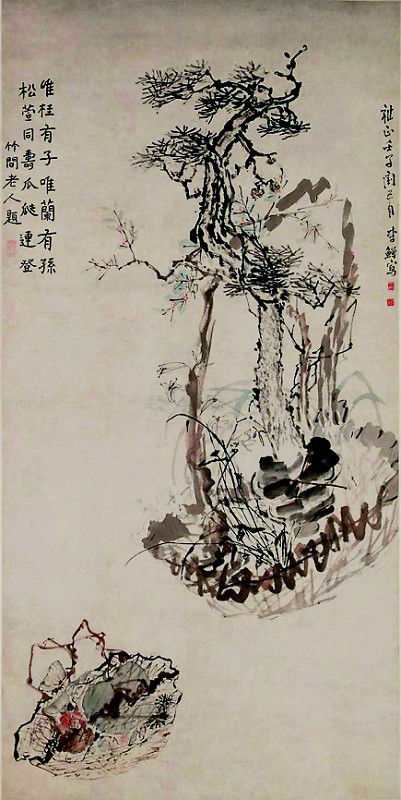 雍正壬子閏五月 李鱓寫
唯桂有子唯蘭有孫
松萱同壽瓜瓞連登
竹間老人題